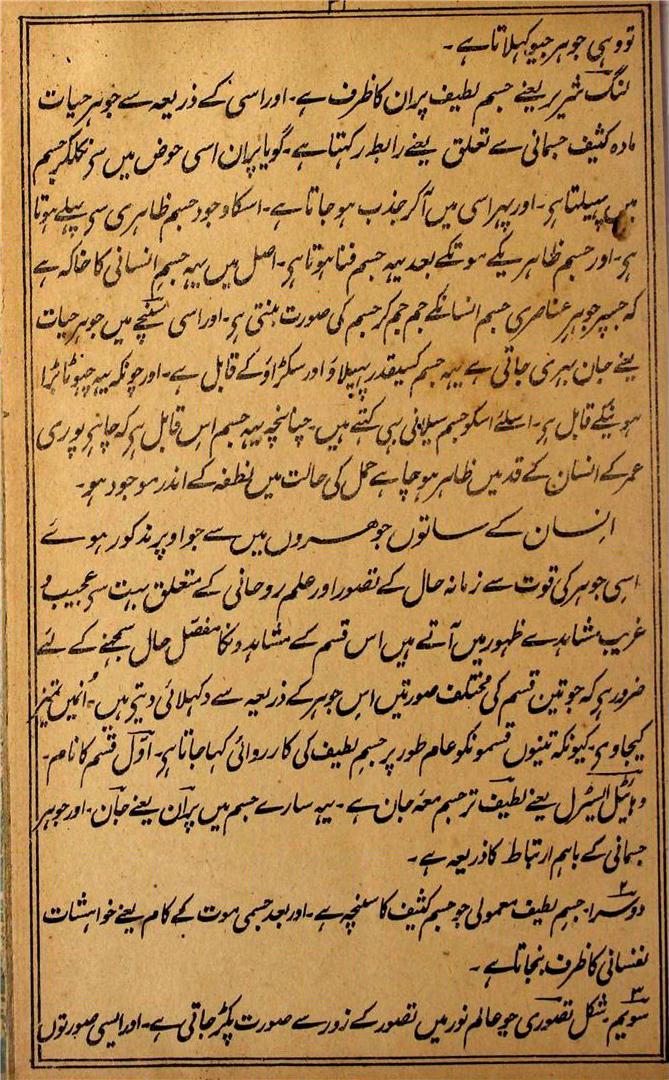 ۲۱
تو وہی جوہر جیو کہلاتا ہے۔
لنگ شریر یعنے جسم لطیف پران کا ظرف ہے۔ اور اسی کے ذریعہ سے جوہر حیات
مادہ کثیف جسمانی سے تعلق یعنے رابطہ رکہتا ہے۔ گویا پران اسی حوض میں سی نکلکر جسم
میں پہیلتا ہی۔ اور پہر اسی میں آ کر جذب ہو جاتا ہے۔ اسکا وجود جسم ظاہری سی پہلے ہوتا
ہی۔ اور جسم ظاہر یکے ہوتکے بعد یہہ جسم فنا ہوتا ہی۔ اصل میں یہہ جسم انسانی کا خاکہ ہے
کہ جسپر جوہر عناصری جسم انسانکے جم جم کر جسم کی صورت بنتی ہی۔ اور اسی سنچے میں جوہر حیات
یعنے جان بہری جاتی ہے یہہ جسم کسیقدر پہیلاؤ اور سکڑاؤ کے قابل ہے۔ اور چونکہ یہہ چہوٹا بڑا
ہونیکے قابل ہی۔ اسلئے اسکو جسم سیلانی بہی کہتے ہیں۔ چنانچہ یہہ جسم اس قابل ہی کہ چاہی پوری
عمر کے انسان کے قد میں ظاہر ہو چاہے حمل کی حالت میں نطفہ کے اندر موجود ہو۔
انسان کے ساتوں جوہروں میں سے جو اوپر مذکور ہوئے
اسی جوہر کی قوت سے زمانہ حال کے تصور اور علم روحانی کے متعلق بہت سی عجیب و
غریب مشاہدے ظہور میں آتے ہیں اس قسم کے مشاہدونکا مفصّل حال سمجہنے کے لئے
ضرور ہی کہ جو تین قسم کی مختلف صورتیں اس جوہر کے ذریعہ سے دکہلائی دیتی ہیں۔ اُنمیں تمیز
کیجاوی۔ کیونکہ تینوں قسمونکو عام طور پر جسم لطیف کی کارروائی کہا جاتا ہی۔ اوّل قسم کا نام۔
وہائیٹل ایسٹرل یعنے لطیف تر جسم معہ جان ہے۔ یہہ سارے جسم میں پران یعنے جان۔ اور جوہر
جسمانی کے باہم ارتباط کا ذریعہ ہے۔
۲ دوسرا۔ جسم لطیف معمولی جو جسم کثیف کا سنچہ ہے۔ اور بعد جسمی موت کے کام یعنے خواہشات
نفسانی کا ظرف بنجاتا ہے۔
۳ سویم۔ شکل تصوری جو عالم نور میں تصور کے زور سے صورت پکڑ جاتی ہے۔ اور ایسی صورتوں